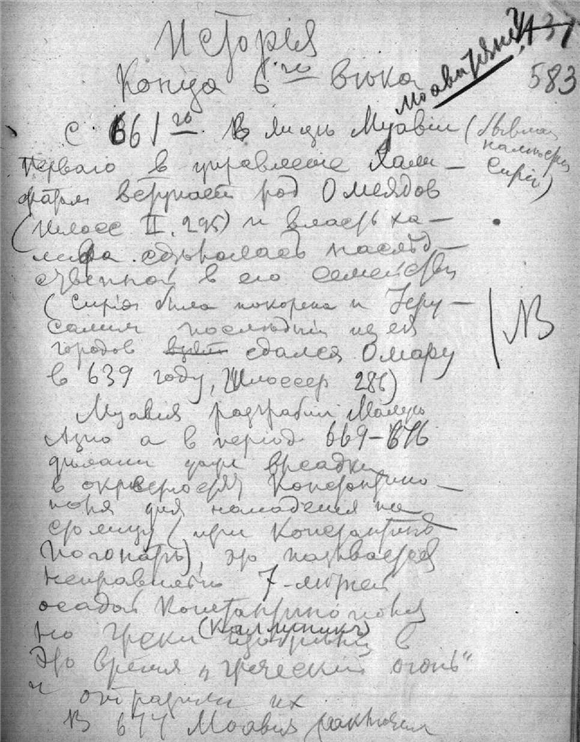 Исторія
Конца 6го вѣка
Моавитяне? 437
583
С 661го В лицѣ Муавіи (бывшаго
намѣстн.
Сиріи)
перваго в управленіе Хали-
фатом вступает род Омеядов
(Шлосс II. 295) и власть ха-
лифа сдѣлалась наслѣд-
ственной в его семействѣ
(Сирія была покорена и Іеру-
салим послѣдній из ея
городов взят сдался Омару
в 639 году, Шлоссер 286)
NB
Муавія разграбил Малую
Азію а в період 669-676
дѣлали даже высадки
в окрестностях Константино-
поля для нападенія на
столицу (при Константинѣ
Погонатѣ), это называется
неправильно 7-лѣтней
осадой Константинополя
но Греки (Каллиникъ) изобрѣли в
это время „греческій огонь“
и отразили их
В 677 Моавія заключил